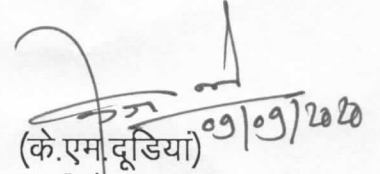 09/09/2020
(के.एम.दूडियां)